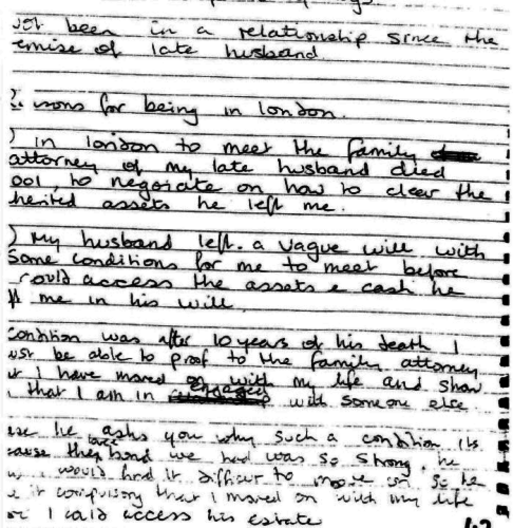 not been in a relationship since the
emise of late husband.
sons for being in london.
) in london to meet the family
attorney of my late husband died
001, to negotiate on how to clear the
herited assets he left me.
) My husband left. a vague will with
Some conditions for me to meet before
could access the assets & cash he
me in his will.
condition was after 10 years of his death I
ust be able to proof to the family attorney
I have moved on with my life and show
that I am in engaged with someone else
he asks you why such a condition its
cause the love bond we had was so strong. he
would find it difficult to move on so he
it compulsory that I moved on with my life
I could access his estate